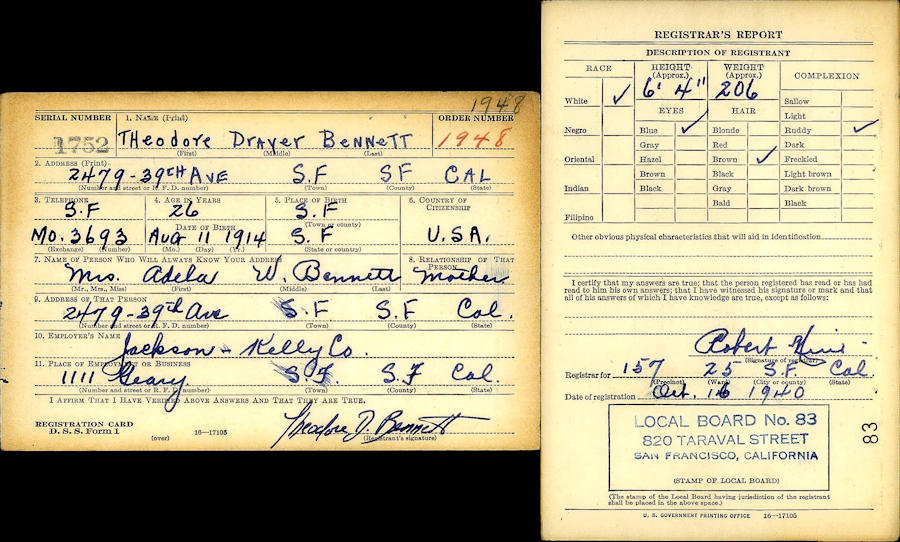 1948
SERIAL NUMBER 1. NAME (Print) ORDER NUMBER
1752 THeodore Drayer BENNETT 1948
(First) (Middle) (Last)
2. ADDRESS (Print)
2479-39TH AVE S.F SF CAL
(Number and street or R. F. D. number) (Town) (County) (State)
3. TELEPHONE 4. AGE IN YEARS 5. PLACE OF BIRTH 6. COUNTRY OF CITIZENSHIP
S.F 26 S.F
DATE OF BIRTH (Town or county)
MO. 3693 AUG 11 1914 S.F U.S.A.
(Exchange) (Number) (Mo.) (Day) (Yr.) (State or county)
7. NAME OF PERSON WHO WILL ALWAYS KNOW YOUR ADDRESS 8. RELATIONSHIP OF THAT PERSON
Mrs. Adela W. Bennett Mother
(Mr., Mrs., Miss) (First) (Middle) (Last)
9. ADDRESS OF THAT PERSON
2479-39th Ave S.F S.F Cal.
(Number and street or R. F. D. number) (Town) (County) (State)
10. EMPLOYER'S NAME
Jackson + Kelly Co.
11. PLACE OF EMPLOYMENT OR BUSINESS
1111 Geary S.F. S.F Cal.
(Number and street or R. F. D. number) (Town) (County) (State)
I AFFIRM THAT I HAVE VERIFIED ABOVE ANSWERS AND THAT THEY ARE TRUE.
REGISTRATION CARD
D. S. S. Form 1 (over) 16—17105 Theodore D. Bennett
(Registrant's signature)
REGISTRAR'S REPORT
DESCRIPTION OF REGISTRANT
RACE HEIGHT (Approx.) WEIGHT (Approx.) COMPLEXION
6' 4" 206
White ✓ EYES HAIR Sallow
Light
Negro Blue ✓ Blonde Ruddy ✓
Gray Red Dark
Oriental Hazel Brown ✓ Freckled
Brown Black Light brown
Indian Black Gray Dark brown
Bald Black
Filipino
Other obvious physical characteristics that will aid in identification
I certify that my answers are true; that the person registered has read or has had
read to him his own answers; that I have witnessed his signature or mark and that
all of his answers of which I have knowledge are true, except as follows:
Robert
(Signature of registrar)
Registrar for 157 25 S.F. Cal.
(Precinct) (Ward) (City or county) (State)
Date of registration Oct. 16 1940
LOCAL BOARD No. 83
820 TARAVAL STREET
SAN FRANCISCO, CALIFORNIA
(STAMP OF LOCAL BOARD)
83
(The stamp of the Local Board having jurisdiction of the registrant
shall be placed in the above space.)
U. S. GOVERNMENT PRINTING OFFICE 16—17105